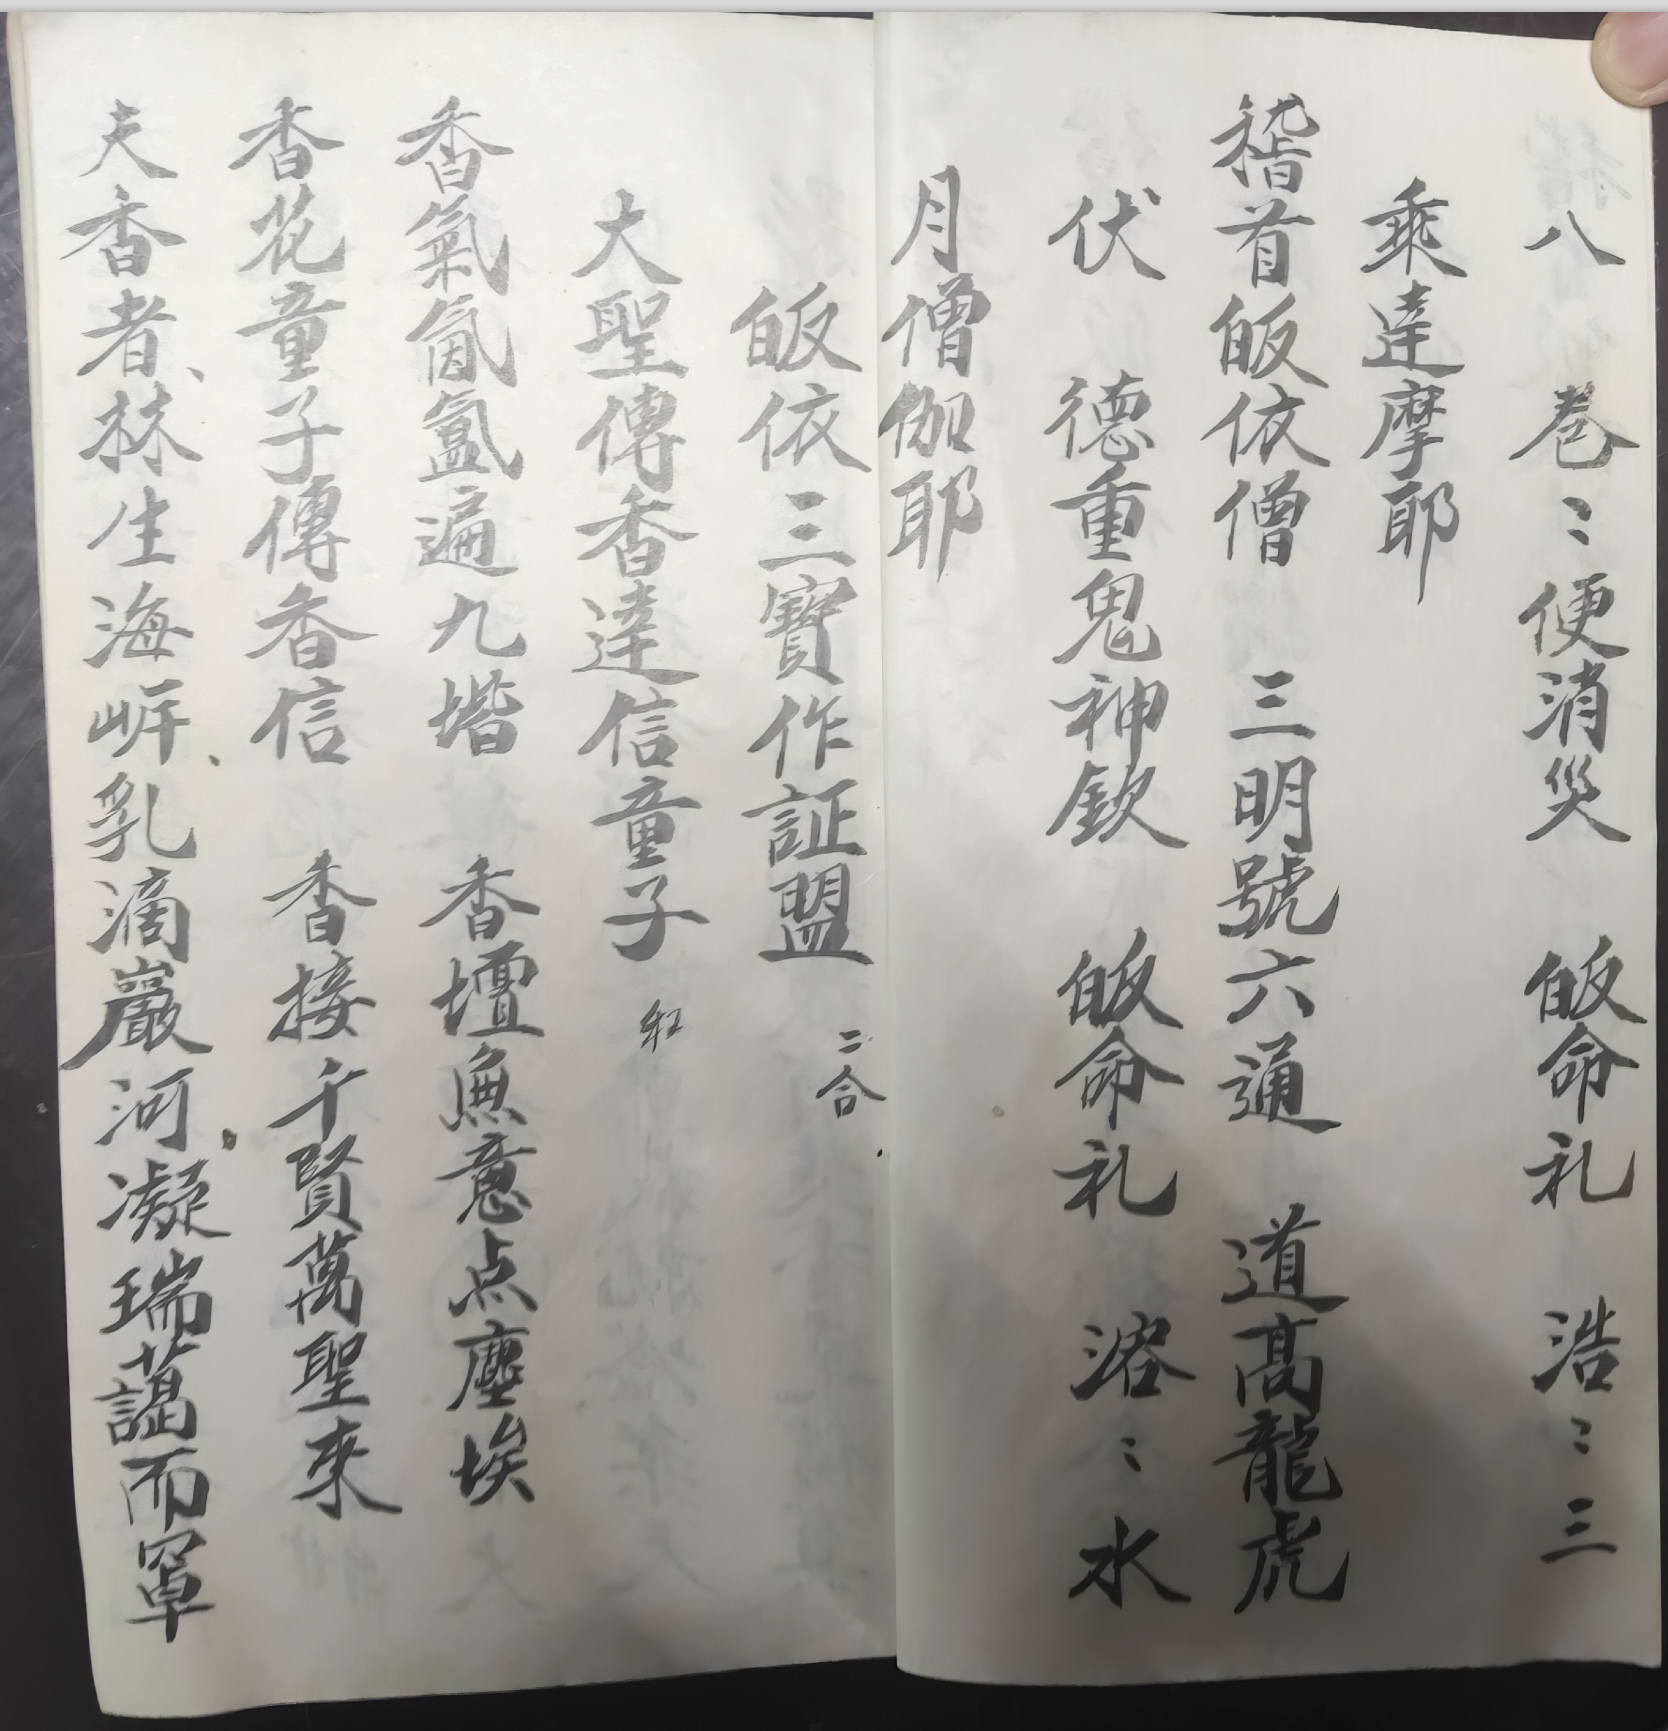 八　卷〻便消災　皈命礼　浩〻三
乘達摩耶
稽首皈依僧　三明號六通　道高龍虎
伏　德重鬼神欽　皈命礼　溶〻水
月僧伽耶
皈依三寶作証盟　二合
大聖傳香達信童子　和
香氣氤氳遍九堦　香壇無意点塵埃
香花童子傳香信　香接千賢萬聖來
夫香者、林生海岸、乳滴巖河、凝瑞藹而罩